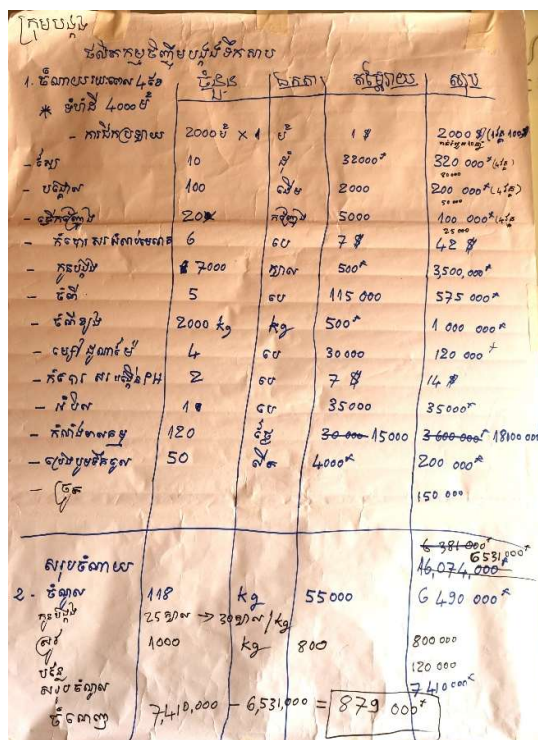 ក្រុមបង្កង
ផលិតកម្មចិញ្ចឹមបង្កងទឹកសាប
1. ចំណាយរយៈពេល 4 ខែ ចំនួន ឯកតា តម្លៃរាយ សរុប
* ទំហំដី 4000ម៉
- ការជីកប្រឡាយ 2000ម៉ × 1 ម៉ 1 $ 2000 $ (4វគ្គ 100$)
- ស្បៃ 10 ដុំ 32000៛ 320 000៛ (4វគ្គ)
80 000
- បង្គោល 100 ដើម 2000 200 000៛ (4វគ្គ)
50 000
20 5000 100 000៛ (4វគ្គ
25 000
- កំបោរ ស 6 បេ 7 $ 42 $
- កូនបង្កង 7000 ក្បាល 500៛ 3,500,000៛
- ចំណី 5 បេ 115 000 575 000៛
- ចំណីខ្យង 2000 kg kg 500៛ 1 000 000៛
- ម្សៅដូឡូម៉ៃ 4 បេ 30000 120 000៛
- កំបោរ ស បង្កើន PH 2 បេ 7 $ 14 $
- អំបិល 1 បេ 35000 35000៛
- កំលាំងពលកម្ម 120 ថ្ងៃ 30 000 15000 3 600 000៛ 18100 00
- ប្រេងបូមទឹកចូល 50 លីត 4000៛ 200 000៛
- ច្រូត 150 000
6 381 000៛
6 531,000៛
សរុបចំណាយ 16,074,000៛
2 - ចំណូល 118 kg 55000 6 490 000៛
កូនបង្កង 25 ក្បាល → 30 ក្បាល / kg
ស្រូវ 1000 kg 800 800 000
បន្លែ 120 000
សរុបចំណូល 7 410 000៛
ចំណេញ 7,410,000 - 6,531,000 = 879 000៛